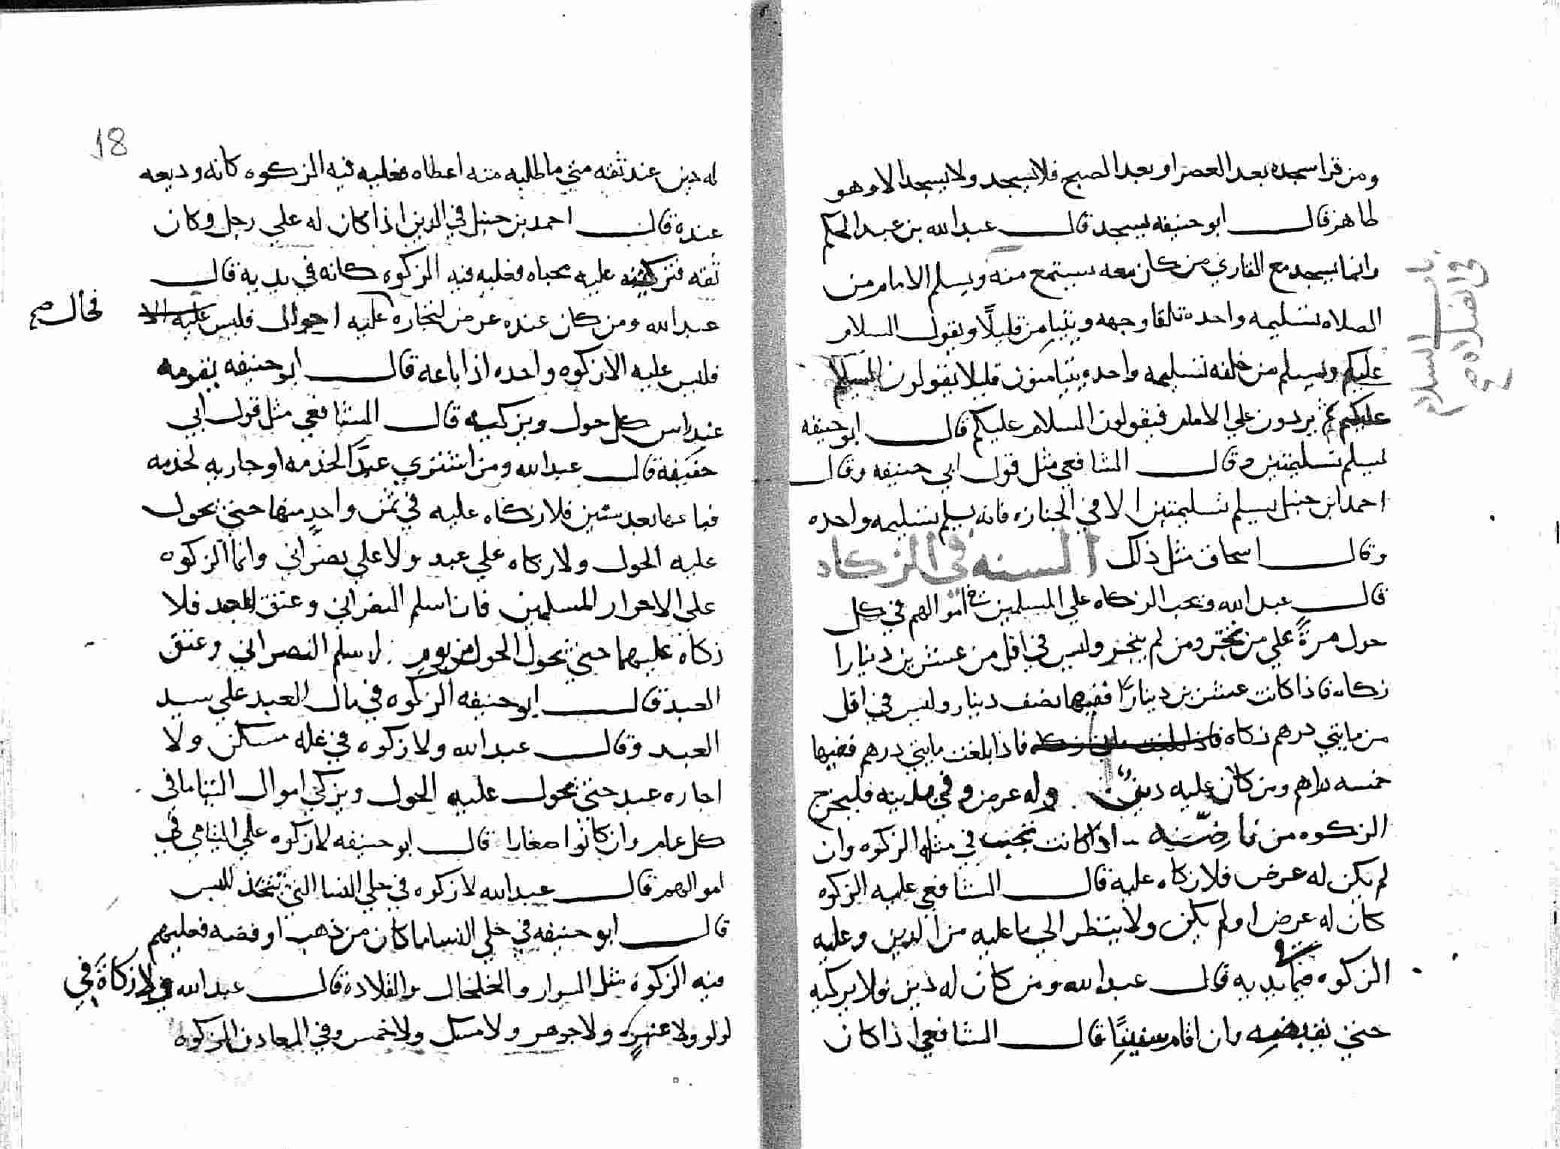 ومن قرا سجده بعد العصر او بعد الصبح فلا يسجد ولا يسجد الا وهو
طاهر قال ابو حنيفه يسجد قال عبد الله بن عبد الحكم
وانما يسجد مع القاري من كان معه يستمع منه ويسلم الامام من
الصلاه تسليمه واحدة تلقا وجهه ويتيامن قليلًا ويقول السلام
عليكم ويسلم من خلفه تسليمه واحده ويتيامنون قليلا يقولون السلام
عليكم ثم يردون علي الامام فيقولون السلام عليكم قال ابو حنيفه
يسلم تسليمتين وقال الشافعي مثل قول ابي حنيفه وقال
احمد ابن حنبل يسلم تسليمتين الا في الجنازه فانه يسلم تسليمه واحده
وقال اسحاق مثل ذلك السنه في الزكاه
قال عبد الله وتجب الزكاه علي المسلمين في اموالهم في كل
حول مرةً علي من تجر ومن لم يتجر وليس في اقل من عشرين دينارا
زكاه فاذا كانت عشرين دينارًا ففيها نصف دينار وليس في اقل
من مايتي درهم زكاه فاذا بلغت مايتي درهم ففيها
خمسه دراهم ومن كان عليه دين وله عرض وفي بدينه فليخرج
الزكوه من ناضه اذا كانت تجب في مثله الزكوه وان
لم يكن له عرض فلا زكاه عليه قال الشافعي عليه الزكوه
كان له عرض او لم يكن ولا ينظر الي ما عليه من الدين وعليه
الزكوه فيما بيديه قال عبد الله ومن كان له دين فلا يزكيه
حتي يقبضه وان اقام سنينًا قال الشافعي اذا كان
باب السلام
في الصلاه
18
له دين عند ثقه متي ما طلبه منه اعطاه فعليه فيه الزكوه كانه وديعه
عنده قال احمد بن حنبل في الدين اذا كان له علي رجل وكان
ثقه فتركه عليه محاباه فعليه فيه الزكوه كانه في يديه قال
عبد الله ومن كان عنده عرض لتجاره عليه احوال فليس عليه الا
فليس عليه الا زكوه واحده اذا باعه قال ابو حنيفه يقومه
عند راس كل حول ويزكيه قال الشافعي مثل قول ابي
حنيفة قال عبد الله ومن اشتري عبدًا لخدمه او جاريه لخدمه
فباعها بعد سنين فلا زكاه عليه في ثمن واحدٍ منها حتي يحول
عليه الحول ولا زكاه علي عبد ولا علي نصراني وانما الزكوه
علي الاحرار المسلمين فان اسلم النصراني وعتق العبد فلا
زكاه عليهما حتي يحول الحول من يوم اسلم النصراني وعتق
العبد قال ابو حنيفه الزكوه في مال العبد علي سيد
العبد وقال عبد الله ولا زكوه في غله مسكن ولا
اجاره عبد حتي يحول عليه الحول ويزكي اموال اليتاما في
كل عام وان كانوا صغارا قال ابو حنيفه لا زكوه علي اليتامي في
اموالهم قال عبد الله لا زكوه في حلي النسا التي تتخذ للبس
قال ابو حنيفه في حلي النسا ما كان من ذهب او فضه فعليهم
فيه الزكوة مثل السوار والخلخال والقلادة قال عبد الله ولا زكاة في
لولو ولا عنبرٍ ولا جوهر ولا مسك ولا خمس وفي المعادن الزكوة